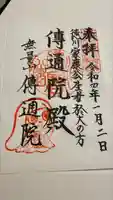 奉拝
令和四年一月二日
徳川家康公生母於大の方
傳通院殿
無量山
傳通院